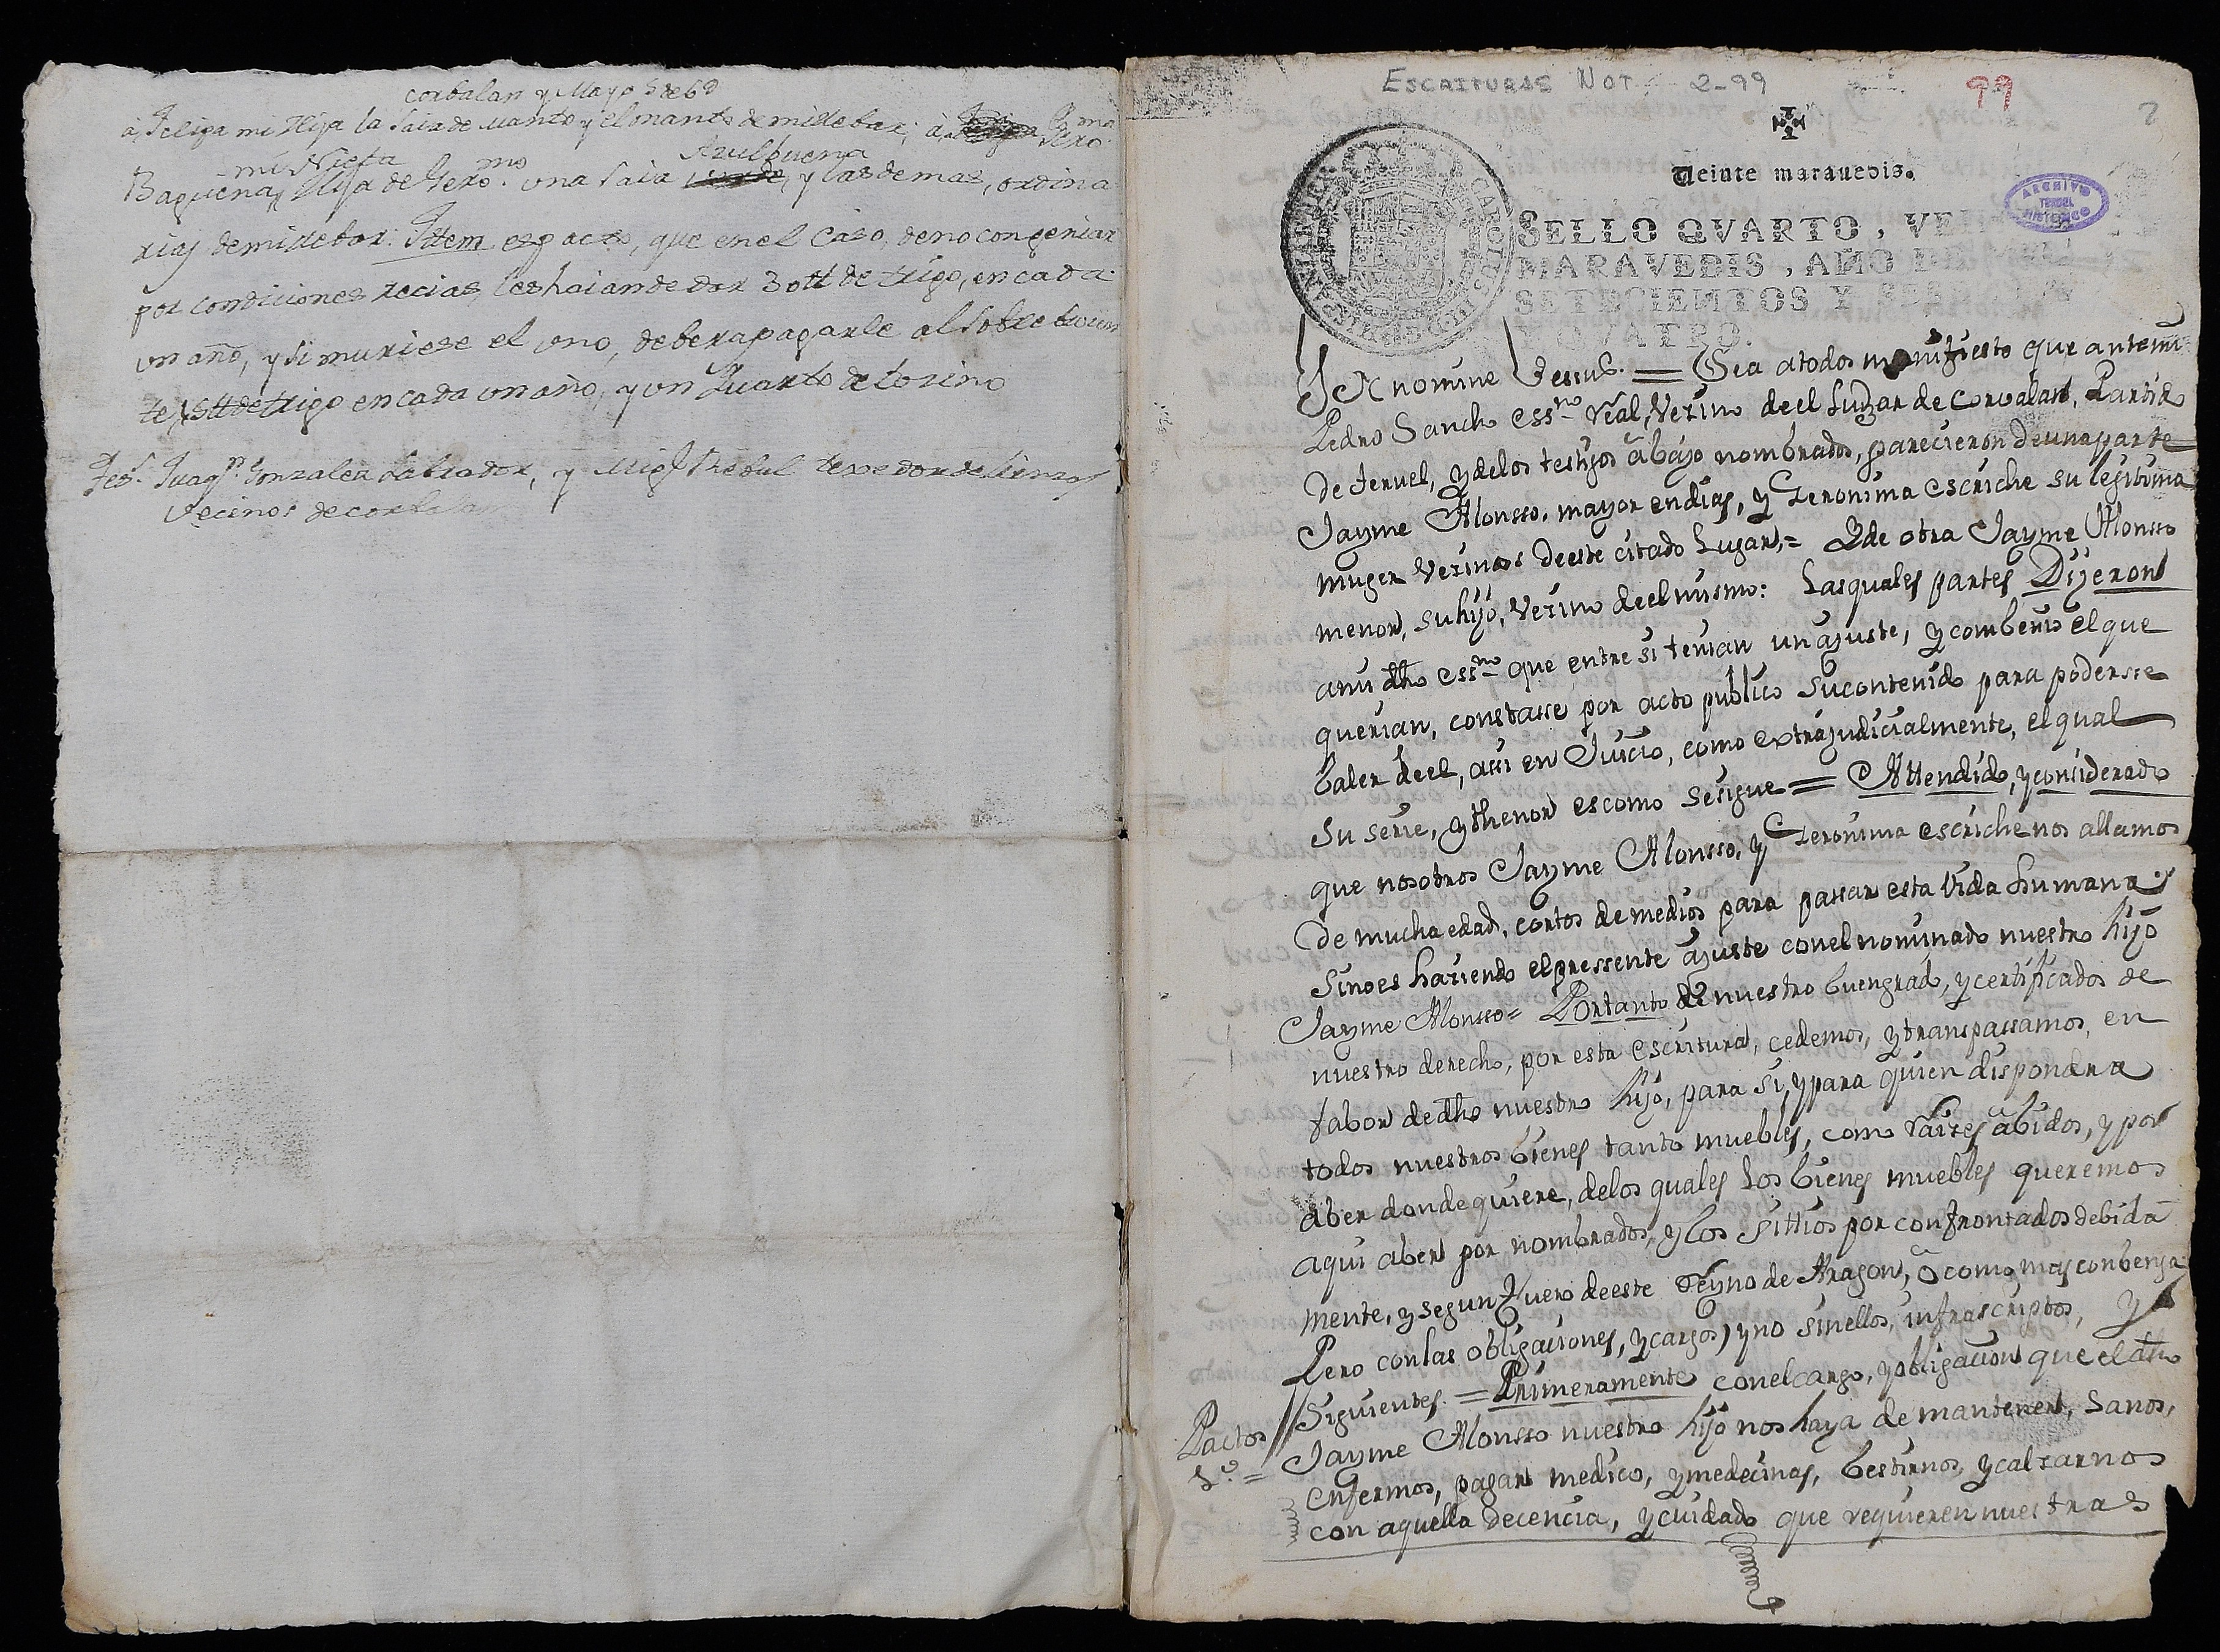 Corbalan y Mayo 5 de 69
à Feliza mi Hija la Saia de Manto y el manto de mi llebar; à Germa
mi Nieta Azul buena
Baguena, Hija de Geromo. una Saia verde, y las demas, ordina
rias de mi llebar: Ittem. es pacto, que en el Caso, de no congeniar
por condiciones recias, les haian de dar de trigo, en cada
un año, y si muriese el uno, debera pagarle al sobrebivien
te de trigo en cada un año, y un Quarto de tosino
Juaqn. Gonzalez Labrador, y Migl texedor de Lienzos
Vecinos de Corbalan
ESCRITURAS NOT. 2-99
99
2
Veinte maravedis.
SELLO QVARTO, VEINTE
MARAVEDIS, AÑO DE MIL
SETECIENTOS Y SESENTA
Y QVATRO.
ARCHIVO
TERUEL
HISTORICO
CAROLUS III D G HISPANIAR
IN nomine Jessus. = Sea a todos manifiesto que ante mi
Pedro Sancho essno. real, Vezino de el Lugar de Corvalan, Partido
de teruel, y de los testigos abajo nombrados, parecieron de una parte
Jayme Alonsso, mayor en dias, y Geronima escriche su legitima
muger Vezinos de este citado Lugar = Y de otra Jayme Alonsso
menor, su hijo, Vezino de el mismo: Las quales partes Dijeron
a mi dho essno. que entre si tenian un ajuste, y combenio el que
querian, constasse por acto publico su contenido para poderse
baler de el, assi en Juicio, como extrajudicialmente, el qual
su serie, y thenor es como se sigue = Attendido, y considerado
que nosotros Jayme Alonsso, y Geronima escriche nos allamos
de mucha edad, cortos de medios para passar esta Vida humana
sino es haziendo el pressente ajuste con el nominado nuestro hijo
Jayme Alonsso = Portanto de nuestro buen grado, y certificados de
nuestro derecho, por esta escritura, cedemos, y transpassamos, en
fabor de dho nuestro hijo, para si, y para quien dispondra
todos nuestros bienes tanto muebles, como raizes abidos, y por
aber donde quiere, de los quales los bienes muebles queremos
aqui aber por nombrados, y los sittios por confrontados debida
mente, y segun fuero de este Reyno de Aragon, ò como mas conbenga
Pero con las obligaciones, y cargos, y no sin ellos, infrascriptos, y
Siguientes. = Primeramente con el cargo, y obligacion que el dho
Pactos
1º. =
Jayme Alonsso nuestro hijo nos haya de mantener, sanos,
enfermos, pagar medico, y medecinas, bestirnos, y calzarnos
con aquella decencia, y cuidado que requieren nuestras